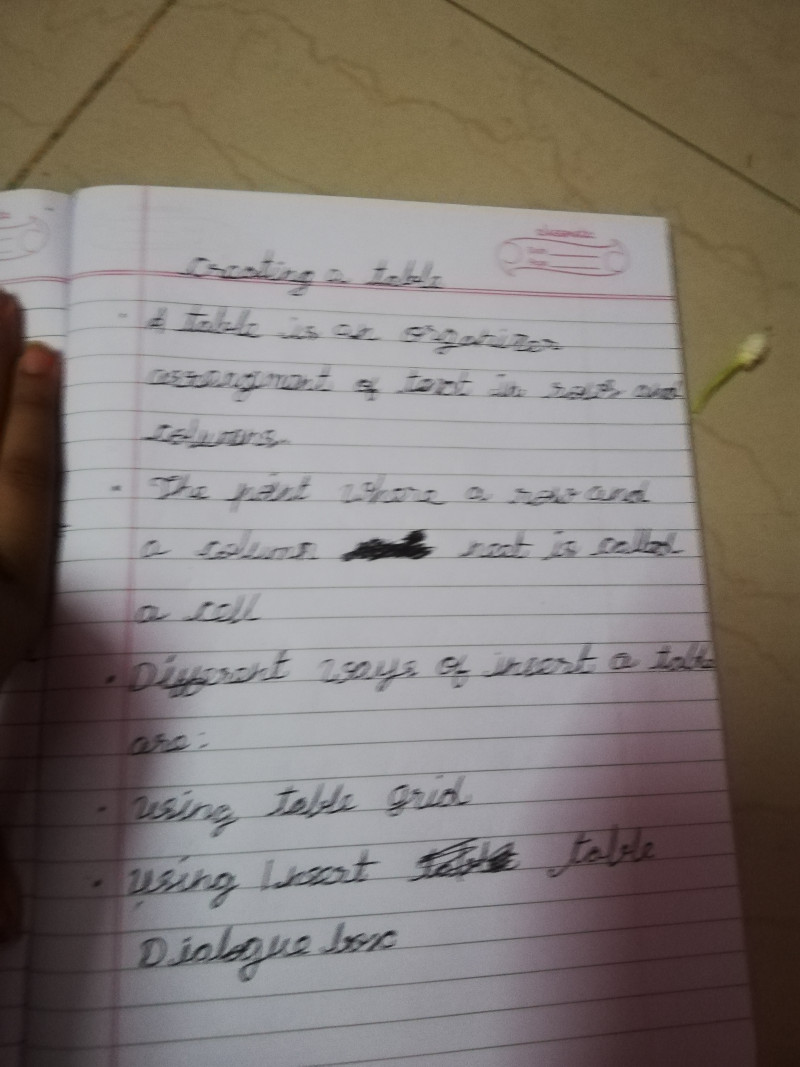 classmate
Date
Page
Creating a table
- A table is an organizer
arrangment of text in rows and
columns.
- The point where a row and
a column meet is called
a cell
• Different ways of insert a table
are:
• Using table grid
• Using Insert table
Dialogue box